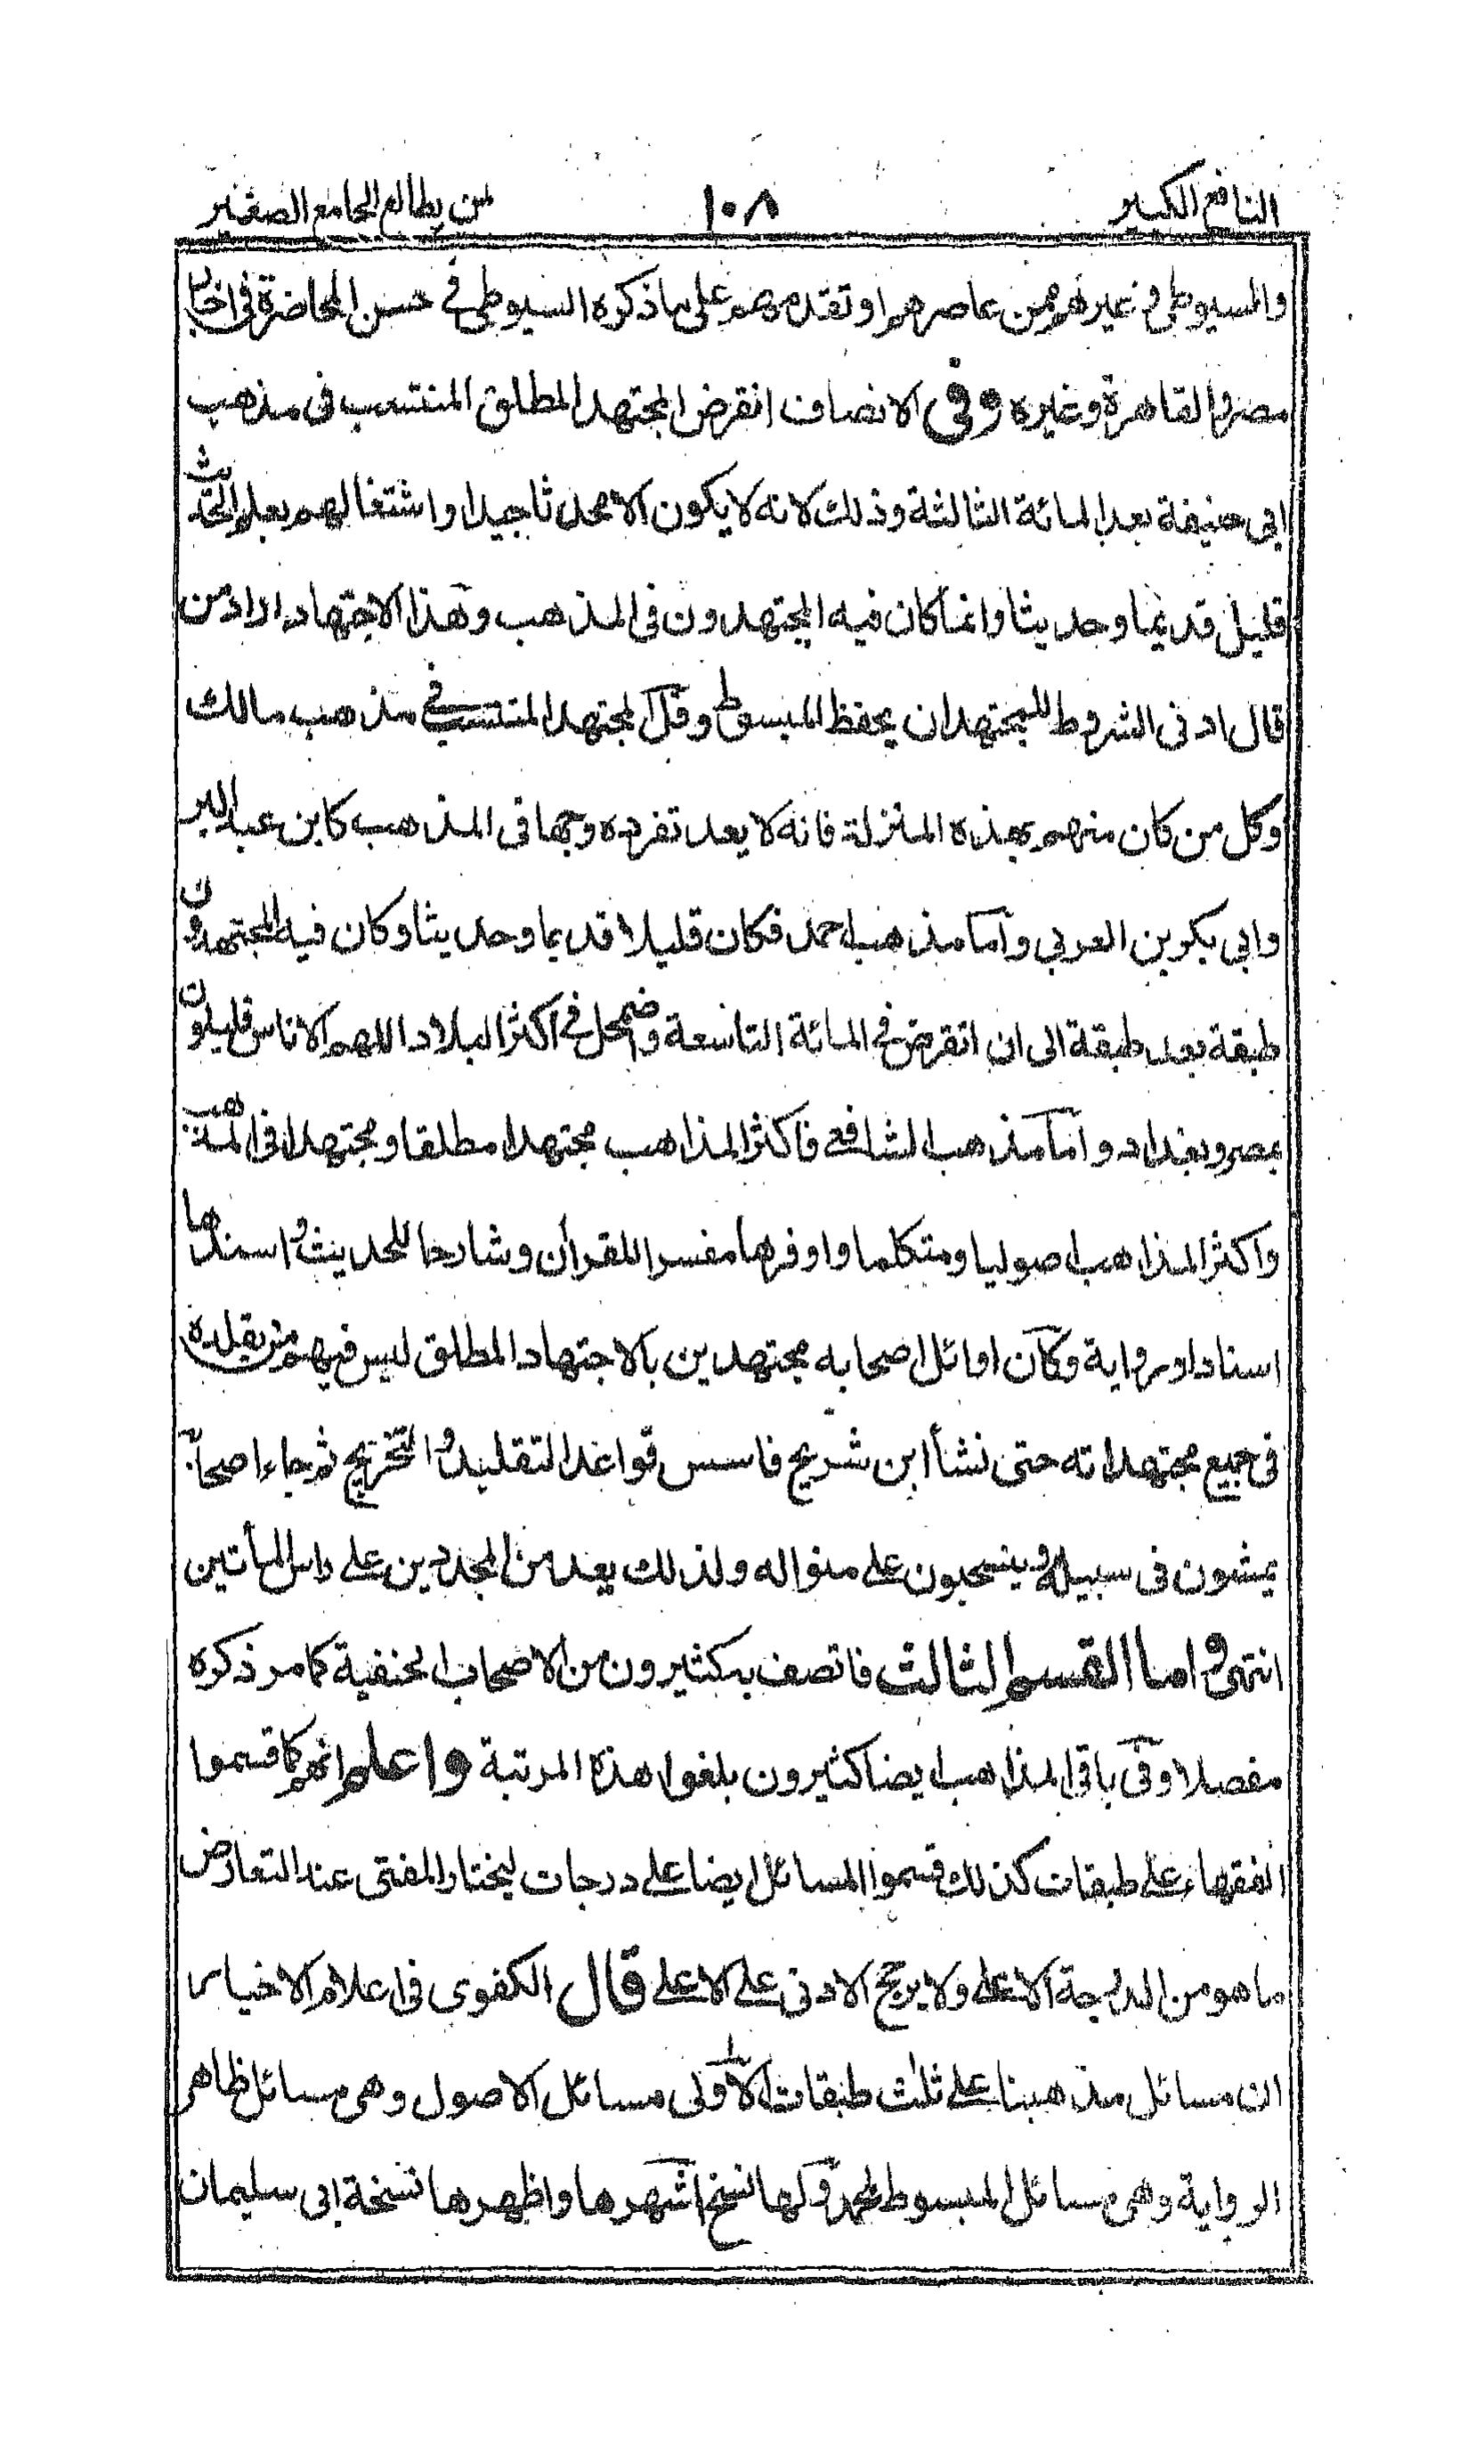 النافع الكبير ١٠٨ لمن يطالع الجامع الصغير
والسيوطى وغيرهم ممن عاصرهم او تقدمهم على ما ذكره السيوطى فى حسن المحاضرة فى اخبار
مصر والقاهرة وغيره وفى الانصاف انقرض المجتهد المطلق المنتسب فى مذهب
ابى حنيفة بعد المائة الثالثة وذلك لانه لا يكون الا محدثا جيدا واشتغالهم بعلم الحديث
قليل قديما وحديثا وانما كان فيه المجتهدون فى المذهب وهذا الاجتهاد اراد من
قال ادنى الشروط للمجتهد ان يحفظ المبسوط وقل المجتهد المنتسب فى مذهب مالك
وكل من كان منهم بهذه المنزلة فانه لا يعد تفرده وجها فى المذهب كابن عبد البر
وابى بكر بن العربى واما مذهب احمد فكان قليلا قديما وحديثا وكان فيه المجتهدون
طبقة بعد طبقة الى ان انقرض فى المائة التاسعة واضمحل فى اكثر البلاد اللهم الا ناس قليلون
بمصر وبغداد واما مذهب الشافعى فاكثر المذاهب مجتهدا مطلقا ومجتهدا فى المذهب
واكثر المذاهب اصوليا ومتكلما واوفرها مفسرا للقرآن وشارحا للحديث واسندها
اسنادا ورواية وكان اوائل اصحابه مجتهدين بالاجتهاد المطلق ليس فيهم من يقلده
فى جميع مجتهداته حتى نشأ ابن شريح فاسس قواعد التقليد والتخريج ثم جاء اصحابه
يمشون فى سبيله وينسحبون على منواله ولذلك يعد من المجددين على راس المأتين
انتهى واما القسم الثالث فاتصف به كثيرون من الاصحاب الحنفية كما مر ذكره
مفصلا وفى باقى المذاهب ايضا كثيرون بلغوا هذه المرتبة واعلم انهم كما قسموا
الفقهاء على طبقات كذلك قسموا المسائل ايضا على درجات ليختار المفتى عند التعارض
ما هو من الدرجة الاعلى ولا يرجح الادنى على الاعلى قال الكفوى فى اعلام الاخيار
ان مسائل مذهبنا على ثلث طبقات الاولى مسائل الاصول وهى مسائل ظاهر
الرواية وهى مسائل المبسوط لمحمد ولها نسخ اشهرها واظهرها نسخة ابى سليمان